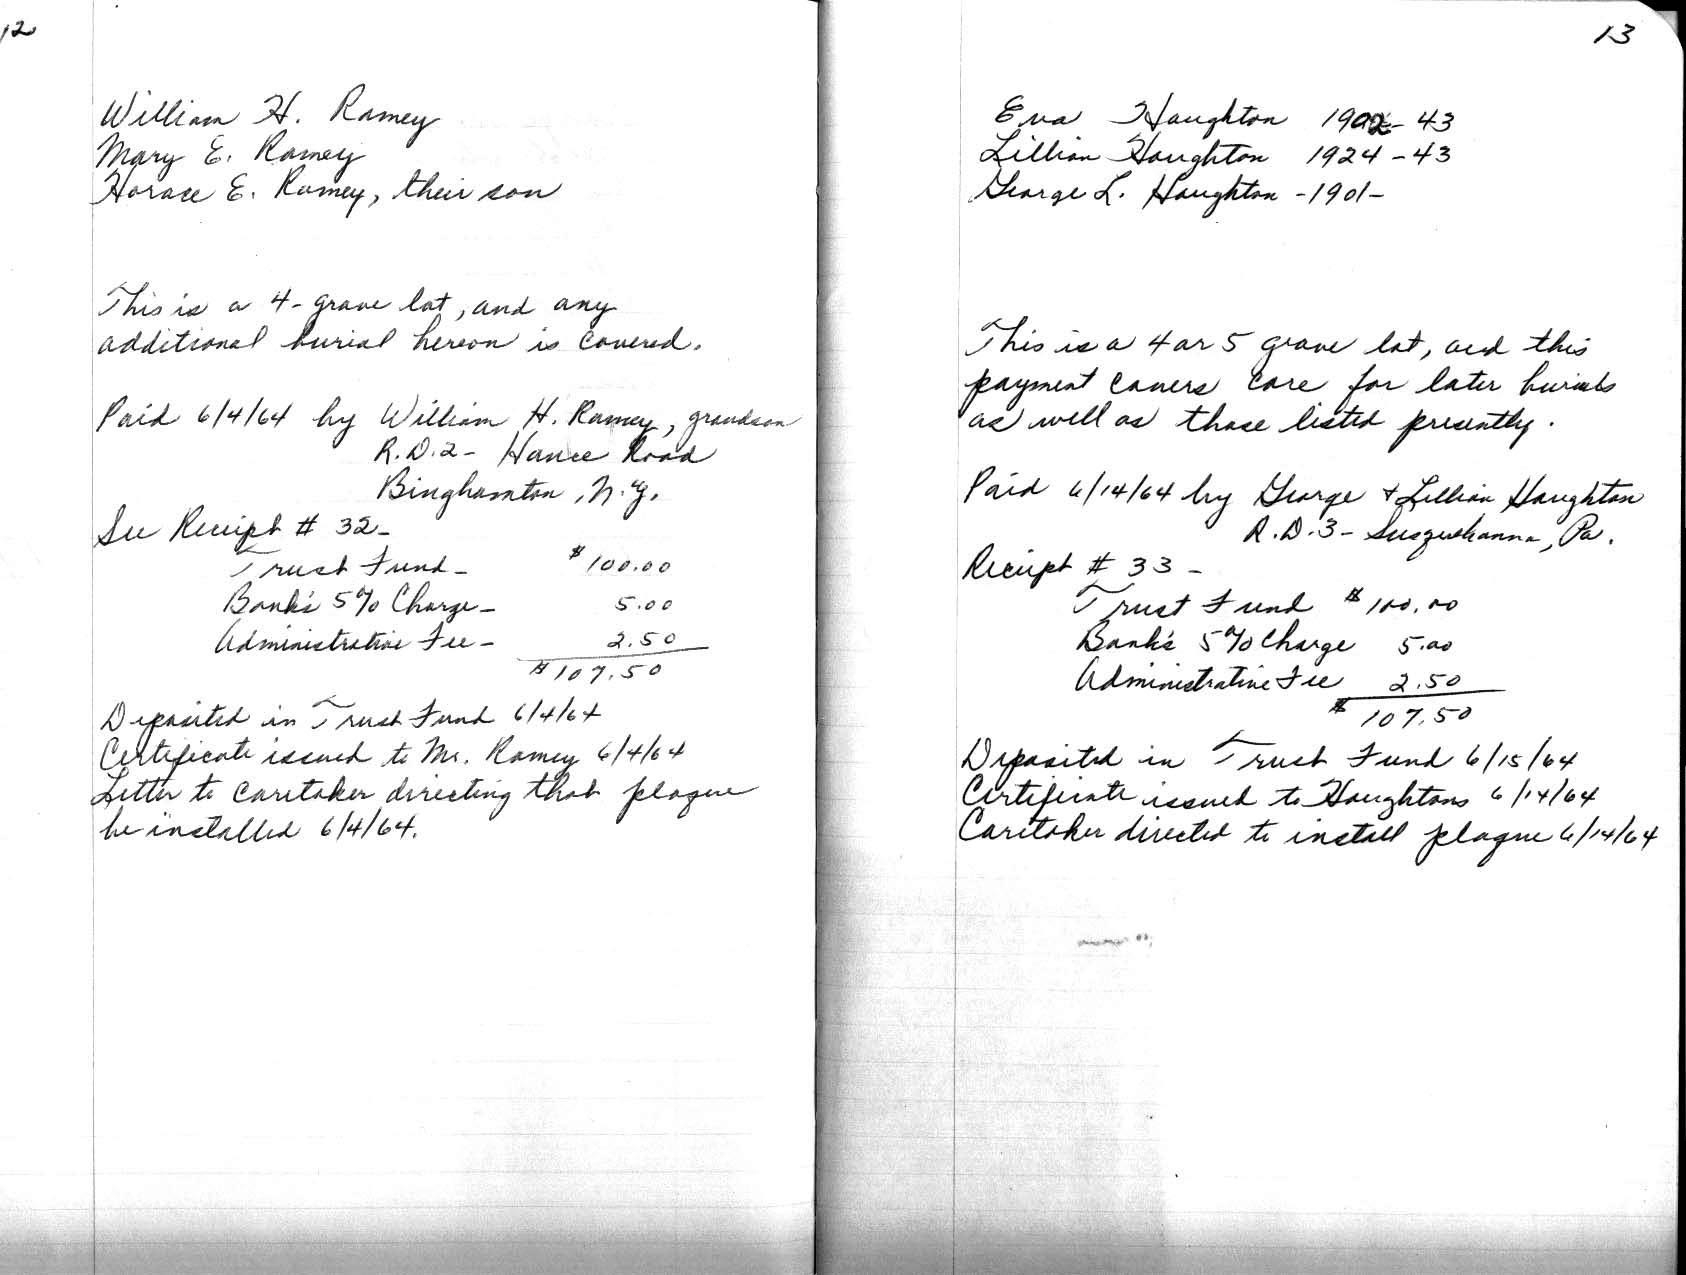 12
William H. Ramey
Mary E. Ramey
Horace E. Ramey, their son
This is a 4-grave lot, and any
additional burial hereon is covered.
Paid 6/4/64 by William H. Ramey, grandson
R.D.2- Hance Road
Binghamton, N.Y.
See Receipt # 32-
Trust Fund- $100.00
Bank's 5% Charge- 5.00
Administrative Fee- 2.50
$107.50
Deposited in Trust Fund 6/4/64
Certificate issued to Mr. Ramey 6/4/64
Letter to caretaker directing that plaque
be installed 6/4/64.
13
Eva Haughton 1902-43
Lillian Haughton 1924-43
George L. Haughton -1901-
This is a 4 or 5 grave lot, and this
payment covers care for later burials
as well as those listed presently.
Paid 6/14/64 by George & Lillian Haughton
R.D.3- Susquehanna, Pa.
Receipt # 33-
Trust Fund $100.00
Bank's 5% Charge 5.00
Administrative Fee 2.50
$107.50
Deposited in Trust Fund 6/15/64
Certificate issued to Haughtons 6/14/64
Caretaker directed to install plaque 6/14/64